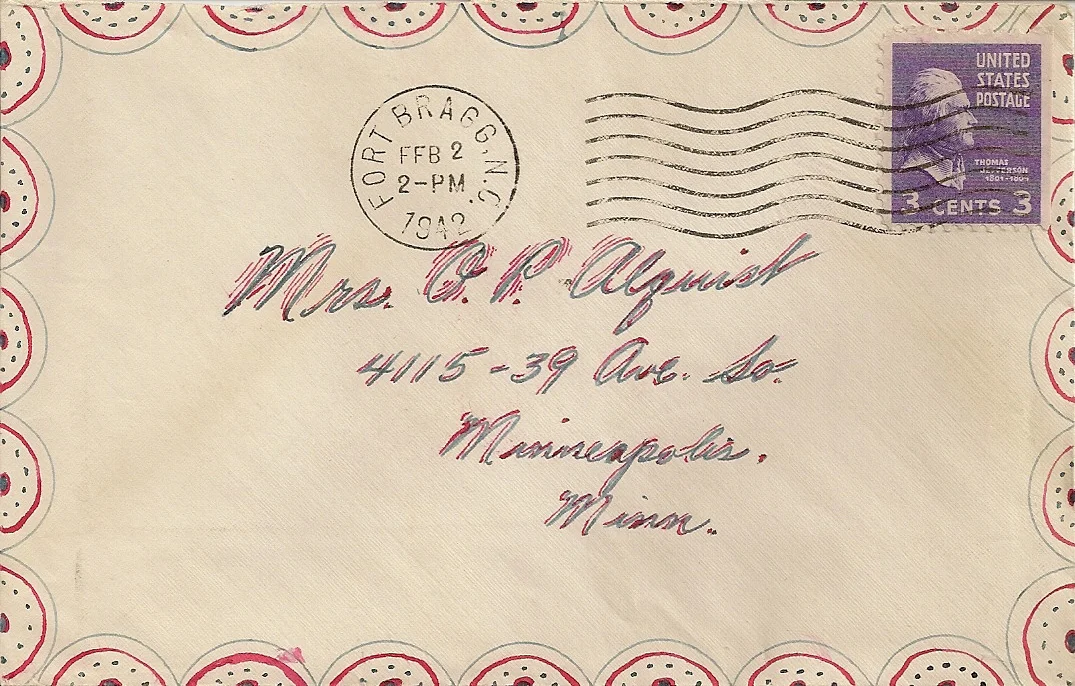 UNITED
STATES
POSTAGE
THOMAS
JEFFERSON
1801-1809
3 CENTS 3
FORT BRAGG, N.C.
FEB 2
2-PM
1942
Mrs. O. P. Alquist
4115-39 Ave. So.
Minneapolis.
Minn.